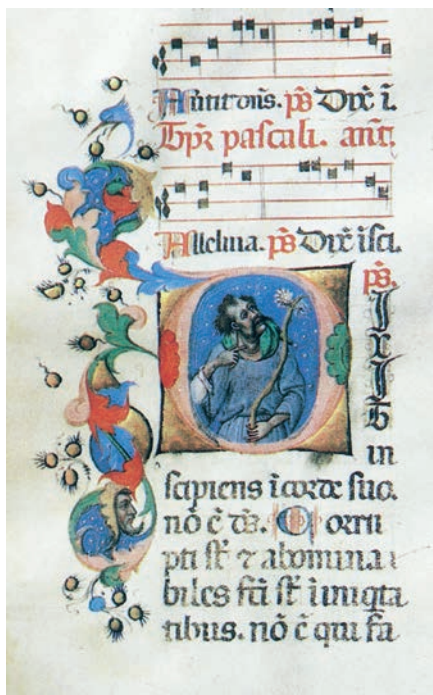 p̄s Dix̄ i.
Tp̄r pascali. ant.
Alleluia. p̄s Dix̄
p̄s.
DIXIT
in
sipiens ī corde suo.
nō ē ds̄. Corru
pti st̄ ⁊ abomina
biles fc̄i st̄ ī iniq̄ta
tibus. nō ē qui fa